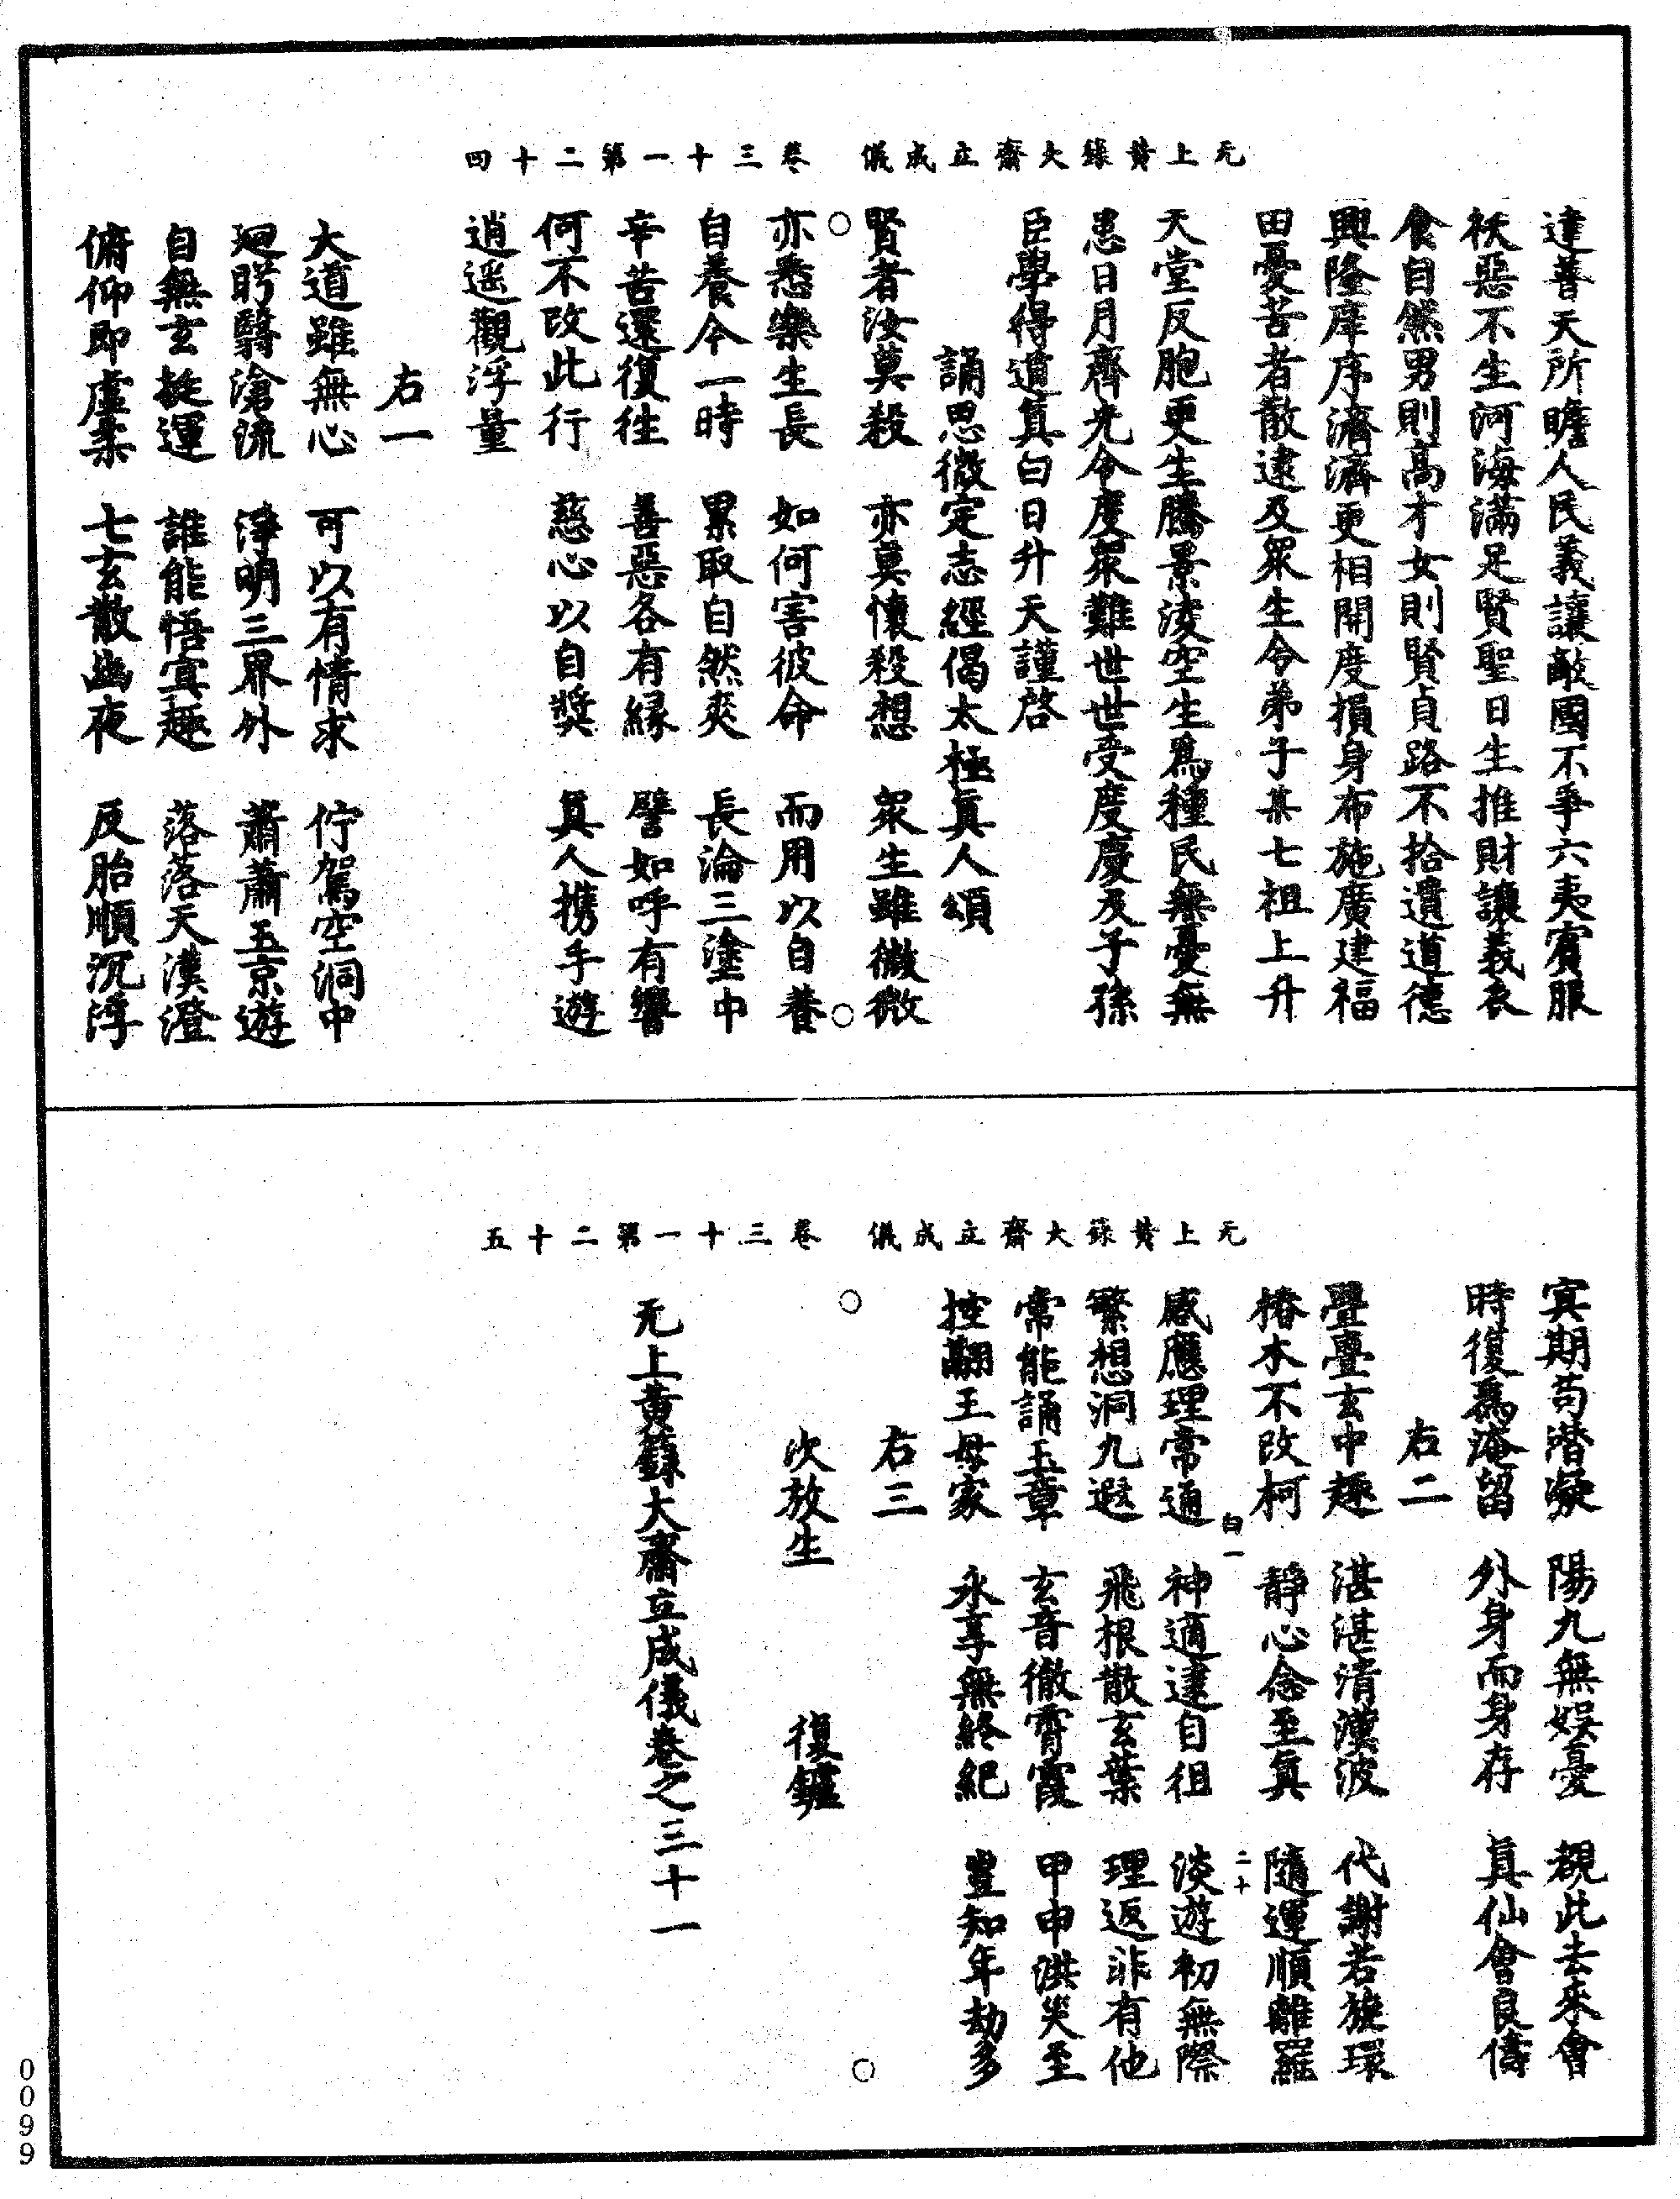 无上黃籙大齋立成儀　卷三十一第二十四
達善天所瞻人民義讓敵國不爭六夷賓服
袄惡不生河海滿足賢聖日生推財讓義衣
食自然男則高才女則賢貞路不拾遺道德
興隆庠序濟濟更相開度損身布施廣建福
田憂苦者散逮及眾生令弟子某七祖上升
天堂反胞更生騰景淩空生為種民無憂無
患日月齊光令度眾難世世受度慶及子孫
臣學得道真白日升天謹啓
誦思微定志經偈太極真人頌
賢者汝莫殺　亦莫懷殺想　眾生雖微微
亦悉樂生長　如何害彼命　而用以自養
自養今一時　累取自然夾　長淪三塗中
辛苦還復往　善惡各有緣　譬如呼有響
何不改此行　慈心以自獎　真人携手遊
逍遥觀浮量
右一
大道雖無心　可以有情求　佇駕空洞中
廻眄翳滄流　淨明三界外　蕭蕭玉京遊
自無玄挺運　誰能悟寘趣　落落天漢澄
俯仰即虛柔　七玄散幽夜　反胎順沉浮
无上黃籙大齋立成儀　卷三十一第二十五
寘期苟潜凝　陽九無娛憂　覩此去來會
時復爲淹留　外身而身存　真仙會良儔
右二
疊疊玄中趣　湛湛清漢波　代謝若旋環
椿木不改柯　靜心念至真　隨運順離羅
白一　二十
感應理常通　神適逮自徂　淡遊初無際
繁想洞九遐　飛根散玄葉　理返非有他
常能誦玉章　玄音徹霄霞　甲申洪災至
控翮王母家　永享無終紀　豈知年劫多
右三
次放生　復鑪
无上黃籙大齋立成儀卷之三十一
0099